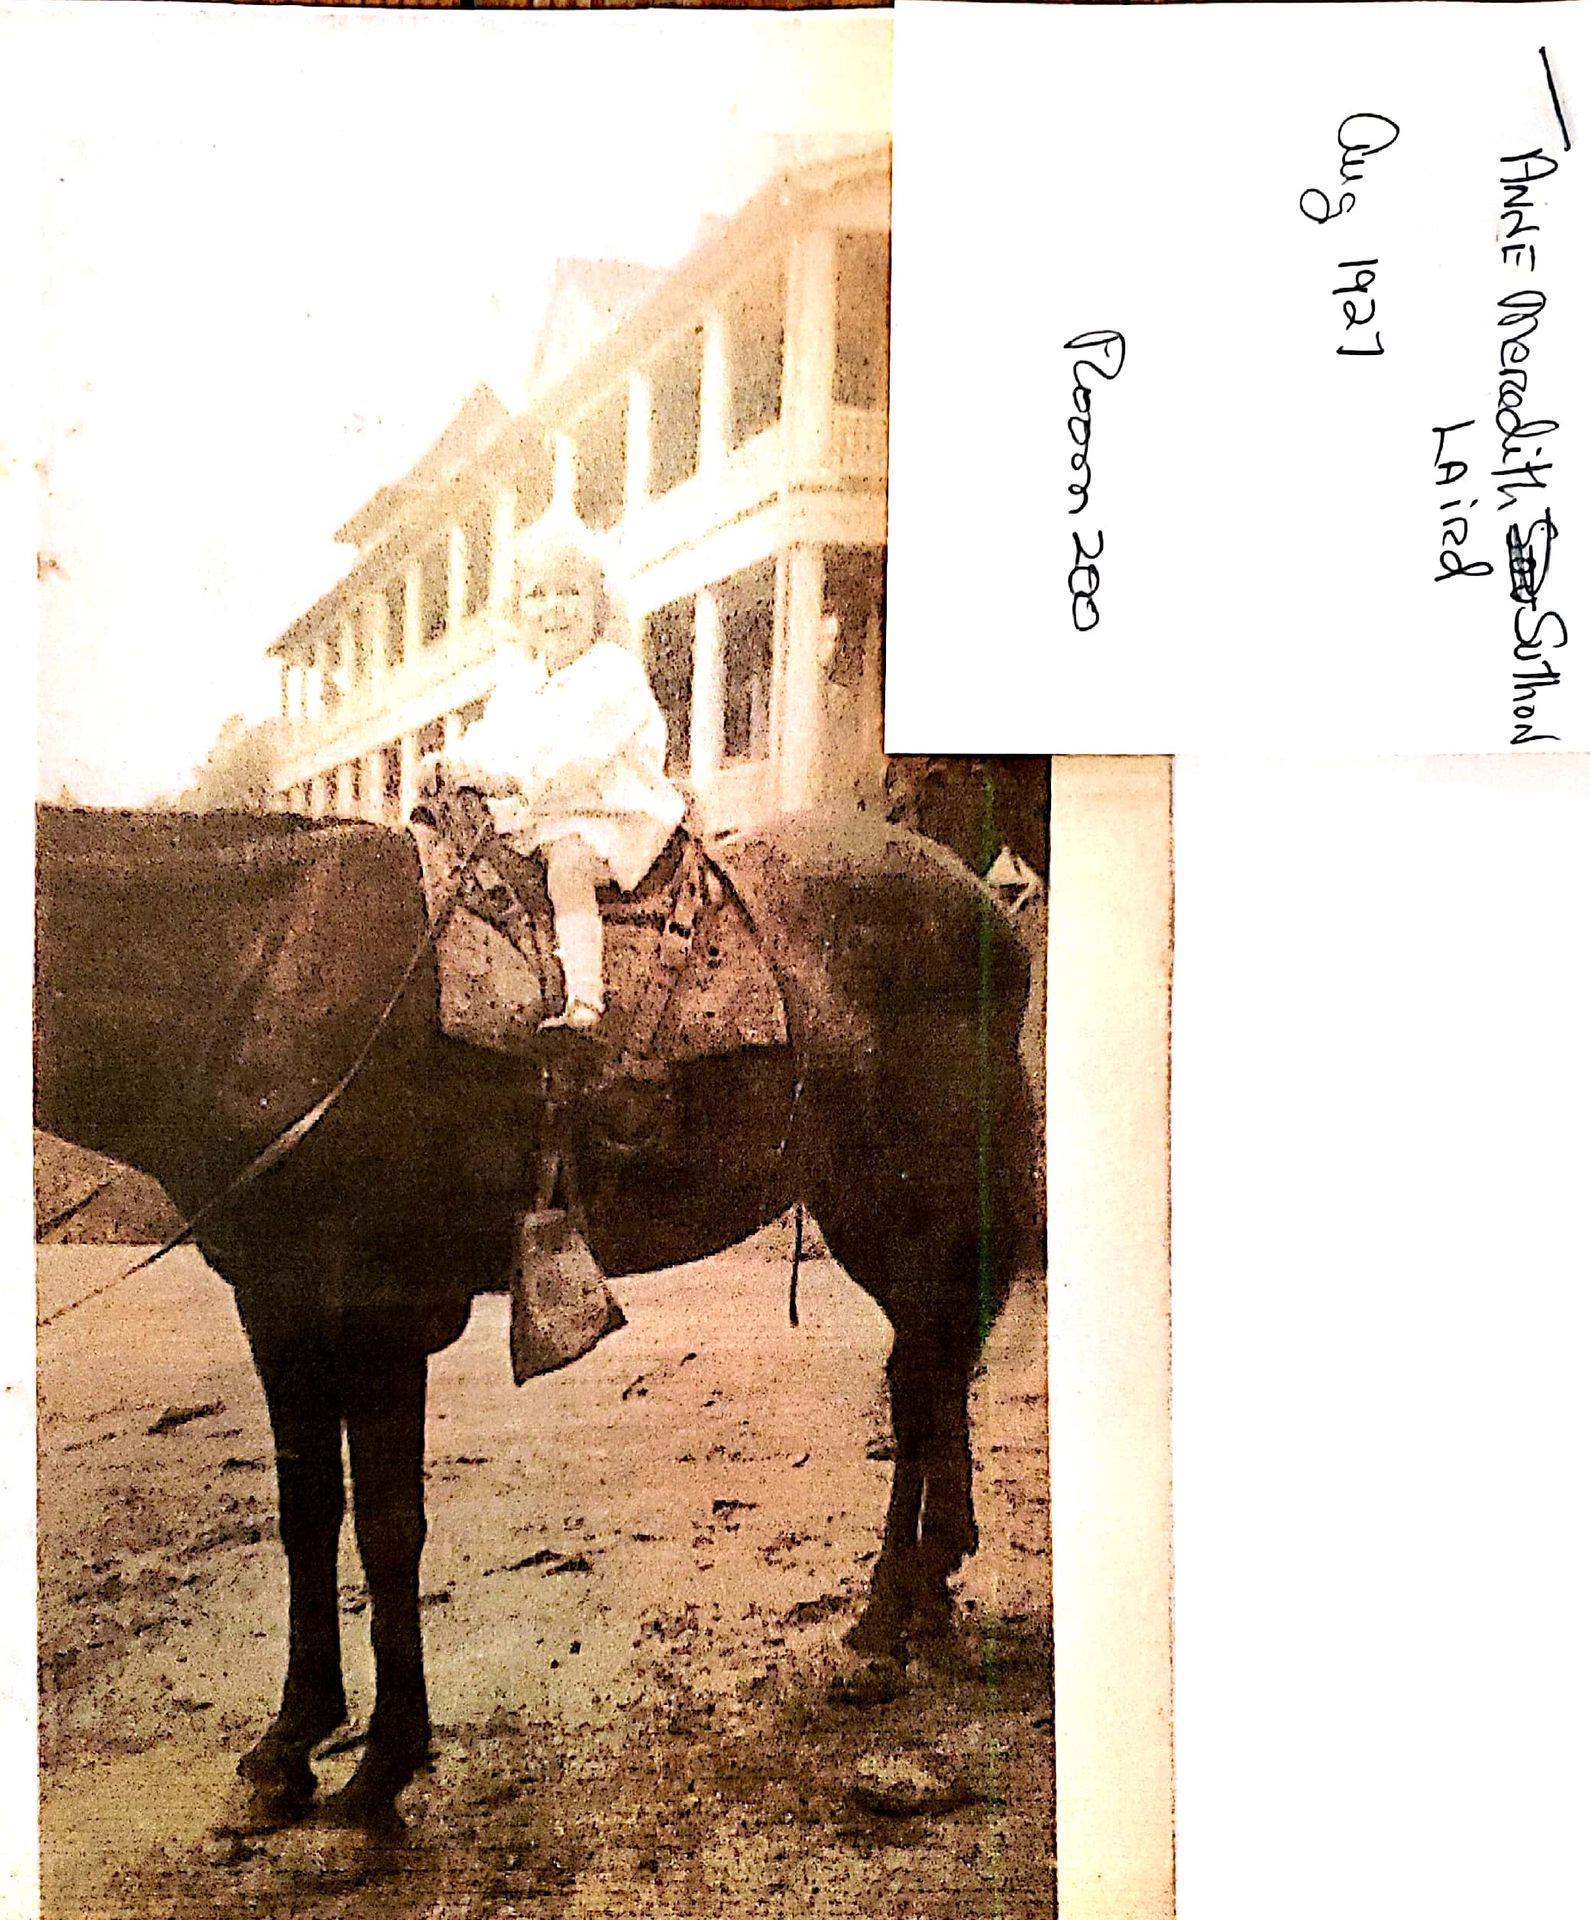 — ANNE Meredith Suthon
LAird
Aug 1927
Room 200